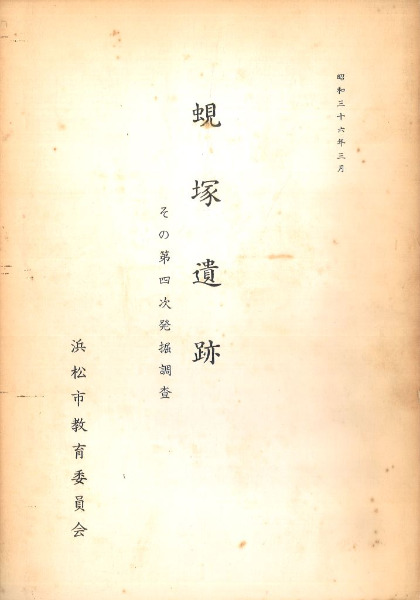 昭和三十六年三月
蜆塚遺跡
その第四次発掘調査
浜松市教育委員会